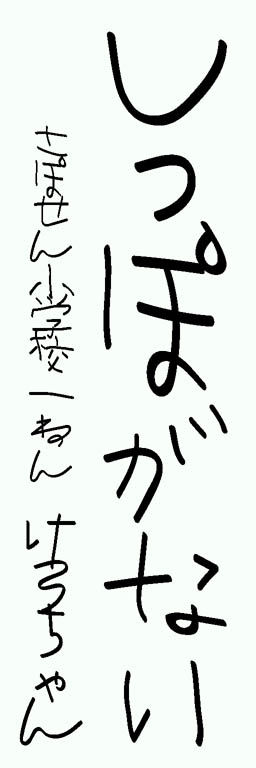 しっぽがない
さぼせん小学校一ねん けろちゃん